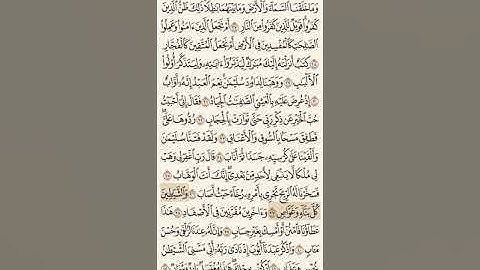 وَمَا خَلَقْنَا ٱلسَّمَآءَ وَٱلْأَرْضَ وَمَا بَيْنَهُمَا بَٰطِلًا ذَٰلِكَ ظَنُّ ٱلَّذِينَ
كَفَرُوا۟ فَوَيْلٌ لِّلَّذِينَ كَفَرُوا۟ مِنَ ٱلنَّارِ ٢٧ أَمْ نَجْعَلُ ٱلَّذِينَ ءَامَنُوا۟ وَعَمِلُوا۟
ٱلصَّٰلِحَٰتِ كَٱلْمُفْسِدِينَ فِى ٱلْأَرْضِ أَمْ نَجْعَلُ ٱلْمُتَّقِينَ كَٱلْفُجَّارِ
٢٨ كِتَٰبٌ أَنزَلْنَٰهُ إِلَيْكَ مُبَٰرَكٌ لِّيَدَّبَّرُوٓا۟ ءَايَٰتِهِۦ وَلِيَتَذَكَّرَ أُو۟لُوا۟
ٱلْأَلْبَٰبِ ٢٩ وَوَهَبْنَا لِدَاوُۥدَ سُلَيْمَٰنَ نِعْمَ ٱلْعَبْدُ إِنَّهُۥٓ أَوَّابٌ
٣٠ إِذْ عُرِضَ عَلَيْهِ بِٱلْعَشِىِّ ٱلصَّٰفِنَٰتُ ٱلْجِيَادُ ٣١ فَقَالَ إِنِّىٓ أَحْبَبْتُ
حُبَّ ٱلْخَيْرِ عَن ذِكْرِ رَبِّى حَتَّىٰ تَوَارَتْ بِٱلْحِجَابِ ٣٢ رُدُّوهَا عَلَىَّ
فَطَفِقَ مَسْحًۢا بِٱلسُّوقِ وَٱلْأَعْنَاقِ ٣٣ وَلَقَدْ فَتَنَّا سُلَيْمَٰنَ
وَأَلْقَيْنَا عَلَىٰ كُرْسِيِّهِۦ جَسَدًا ثُمَّ أَنَابَ ٣٤ قَالَ رَبِّ ٱغْفِرْ لِى وَهَبْ
لِى مُلْكًا لَّا يَنۢبَغِى لِأَحَدٍ مِّنۢ بَعْدِىٓ إِنَّكَ أَنتَ ٱلْوَهَّابُ ٣٥
فَسَخَّرْنَا لَهُ ٱلرِّيحَ تَجْرِى بِأَمْرِهِۦ رُخَآءً حَيْثُ أَصَابَ ٣٦ وَٱلشَّيَٰطِينَ
كُلَّ بَنَّآءٍ وَغَوَّاصٍ ٣٧ وَءَاخَرِينَ مُقَرَّنِينَ فِى ٱلْأَصْفَادِ ٣٨ هَٰذَا
عَطَآؤُنَا فَٱمْنُنْ أَوْ أَمْسِكْ بِغَيْرِ حِسَابٍ ٣٩ وَإِنَّ لَهُۥ عِندَنَا لَزُلْفَىٰ وَحُسْنَ
مَـَٔابٍ ٤٠ وَٱذْكُرْ عَبْدَنَآ أَيُّوبَ إِذْ نَادَىٰ رَبَّهُۥٓ أَنِّى مَسَّنِىَ ٱلشَّيْطَٰنُ